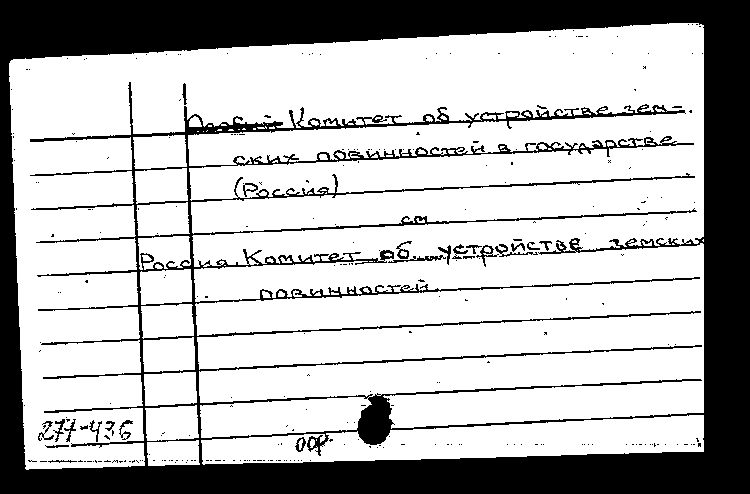 Особый Комитет об устройстве зем-
ских повинностей в государстве
(Россия)
см.
Россия. Комитет об устройстве земских
повинностей.
277-436